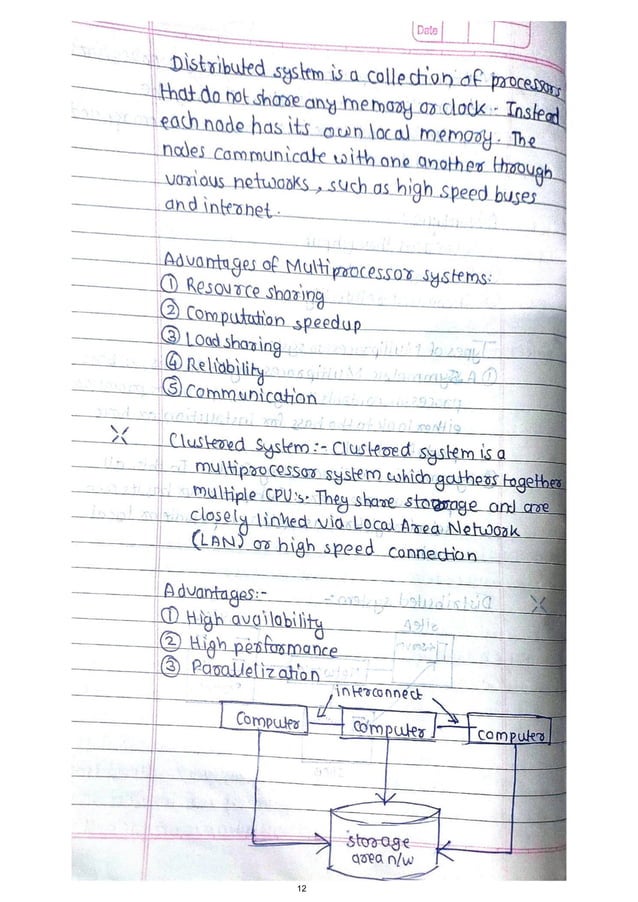 Date
Distributed system is a collection of processors
that do not share any memory or clock. Instead
each node has its own local memory. The
nodes communicate with one another through
various networks, such as high speed buses
and internet.
Advantages of Multiprocessor systems:
① Resource sharing
② Computation speedup
③ Load sharing
④ Reliability
⑤ Communication
Clustered System:- Clustered system is a
multiprocessor system which gathers together
multiple CPU's. They share storage and are
closely linked via Local Area Network
(LAN) or high speed connection
Advantages:-
① High availability
② High performance
③ Parallelization
interconnect
Computer
computer
computer
storage
area n/w
12